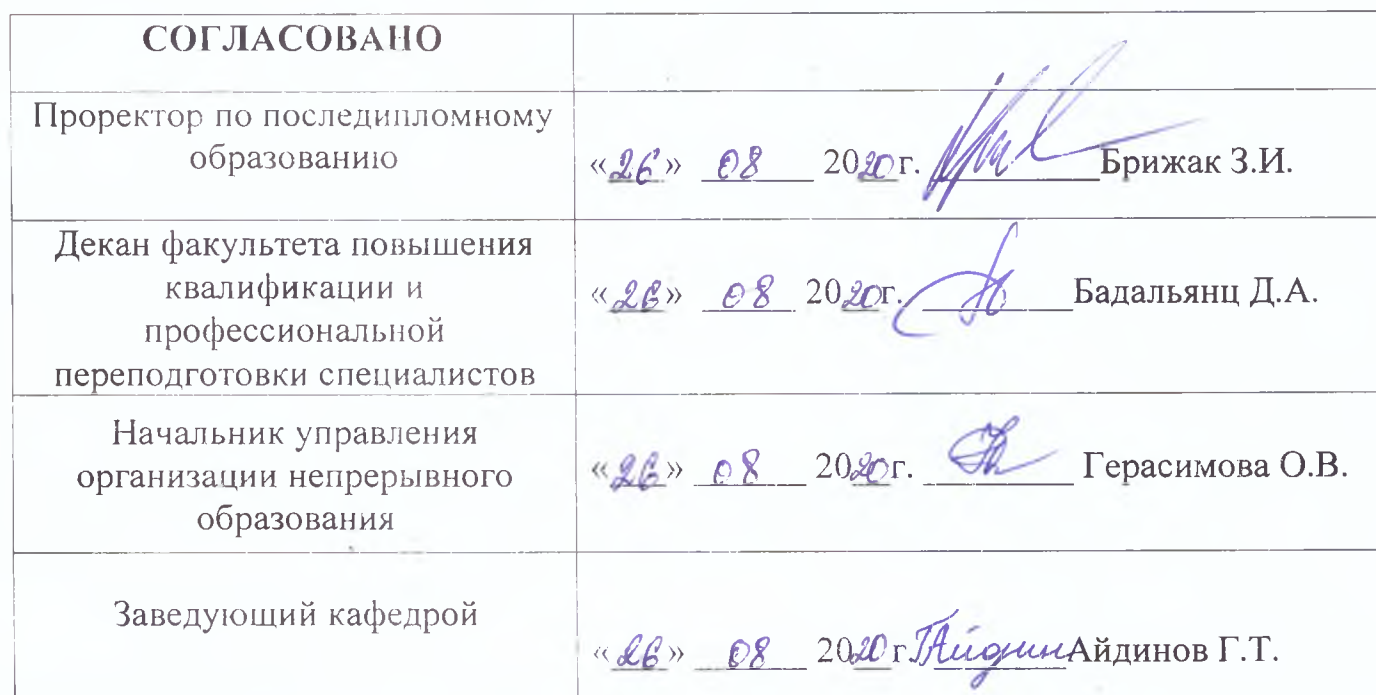 СОГЛАСОВАНО
Проректор по последипломному
образованию
«26» 08 2020г. Брижак З.И.
Декан факультета повышения
квалификации и
профессиональной
переподготовки специалистов
«26» 08 2020г. Бадальянц Д.А.
Начальник управления
организации непрерывного
образования
«26» 08 2020г. Герасимова О.В.
Заведующий кафедрой
«26» 08 2020г ГАйдинов Айдинов Г.Т.